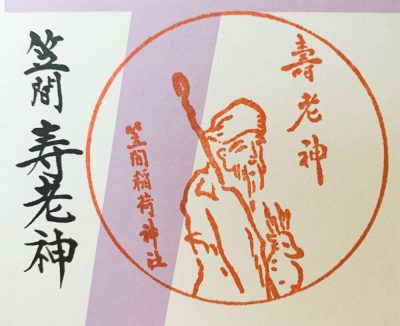 壽老神
笠間稲荷神社
笠間寿老神